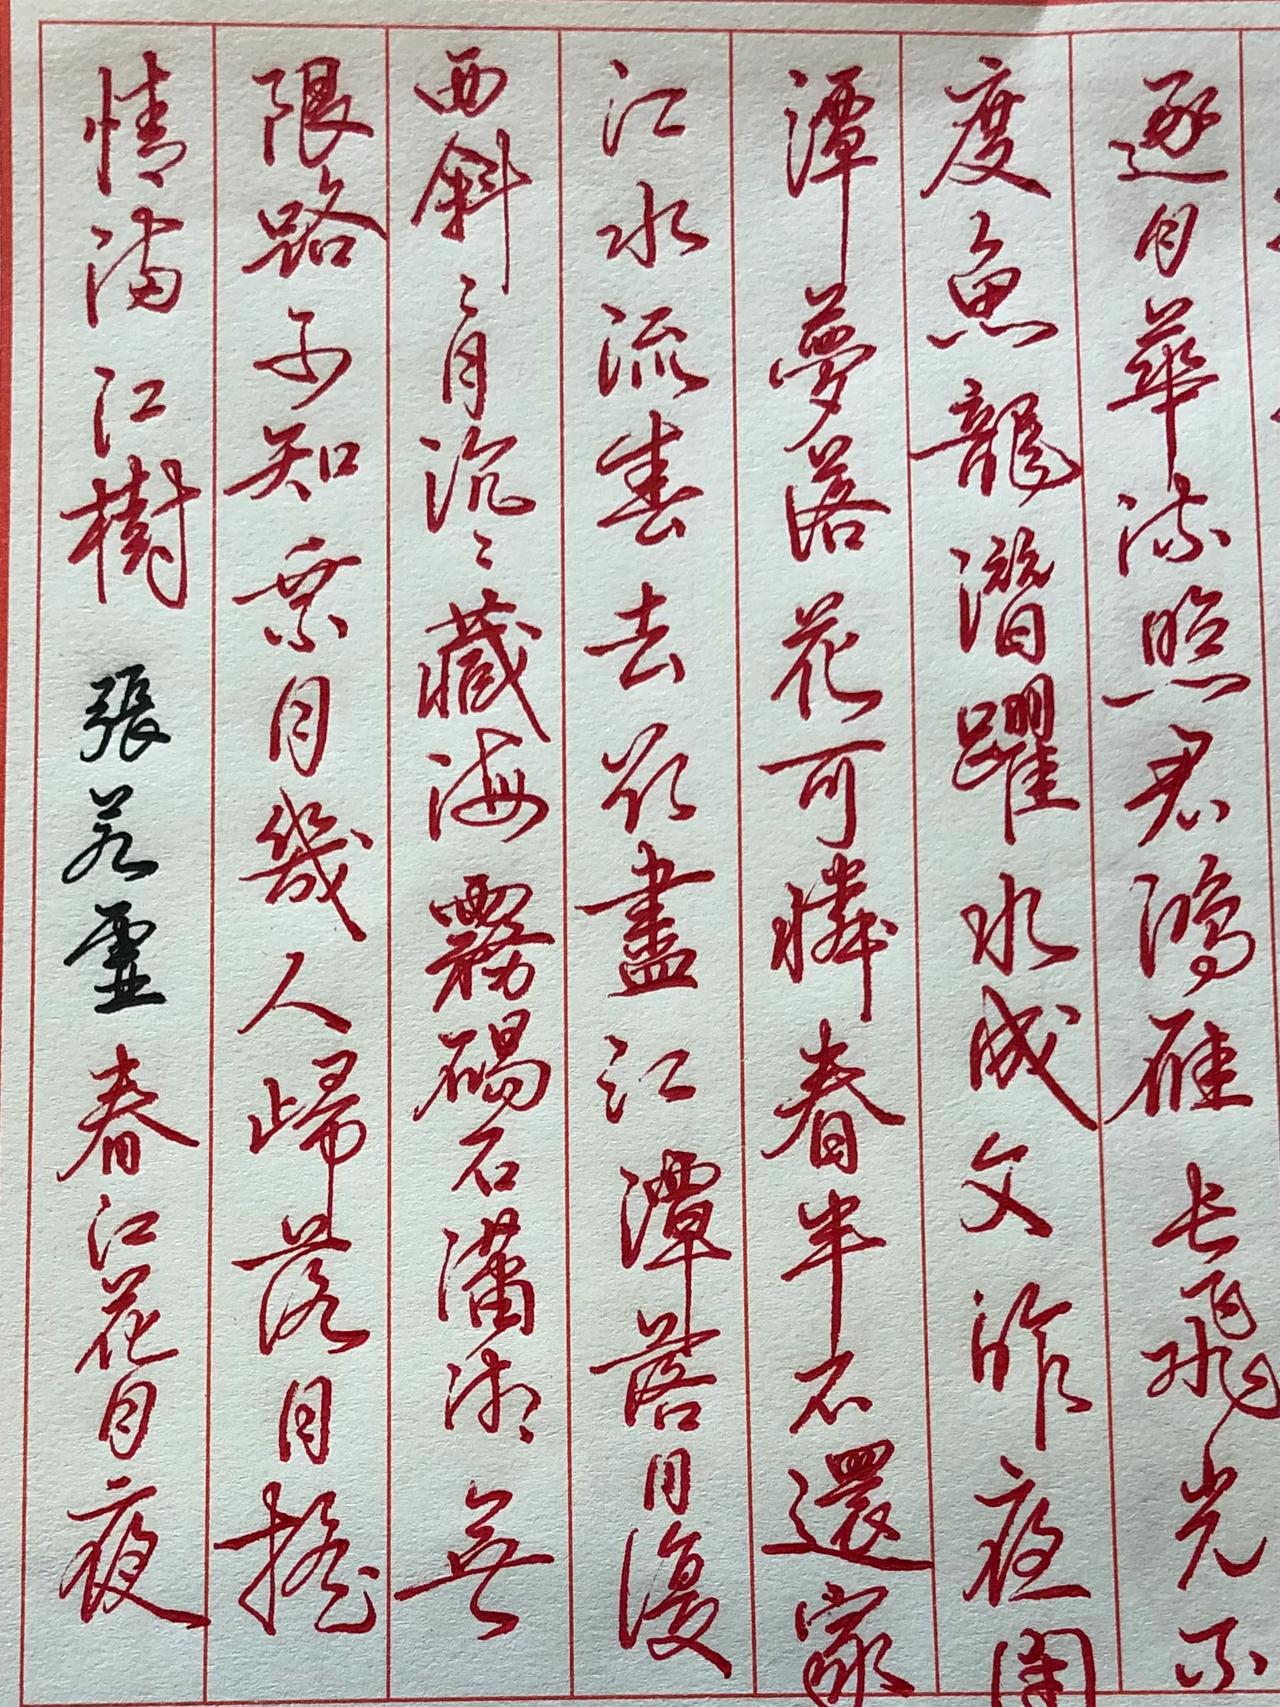 逐月華流照君鴻雁長飛光不
度魚龍潛躍水成文昨夜閑
潭夢落花可憐春半不還家
江水流春去欲盡江潭落月復
西斜〻月沉〻藏海霧碣石瀟湘無
限路不知乘月幾人歸落月搖
情滿江樹 張若虛 春江花月夜